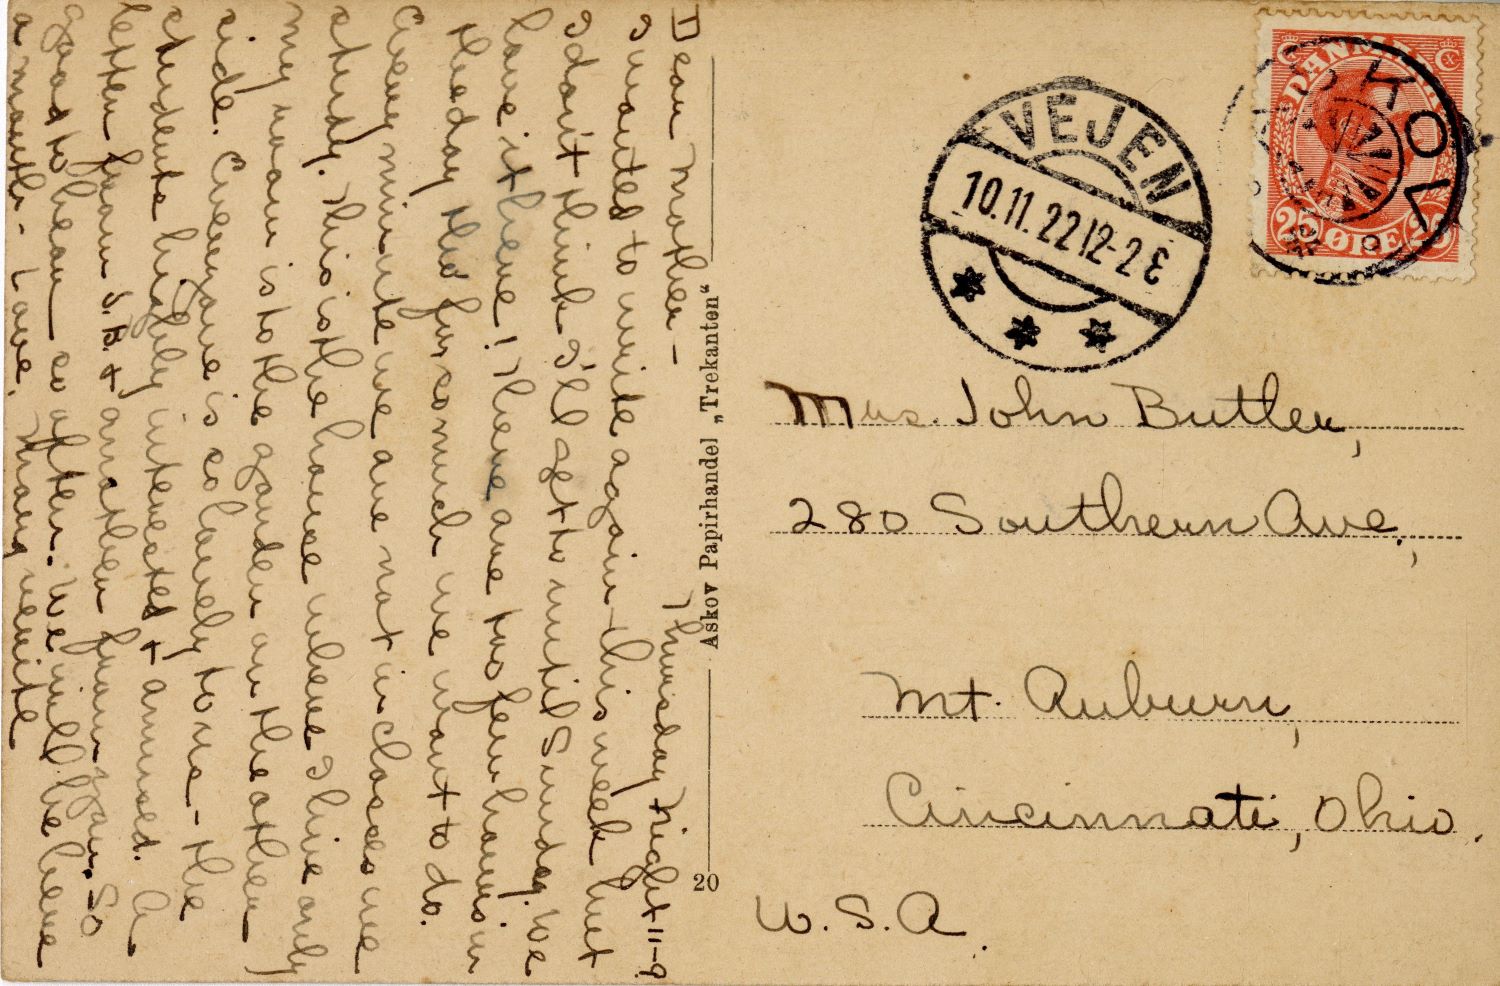 Thursday Night 11-9
Dear Mother -
I wanted to write again this week but
I don't think I'll get to until Sunday. We
love it here! There are two few hours in
the day the for so much we want to do.
Every minute we are not in classes we
study. This is the house where I live only
my room is to the garden on the other
side. Everyone is so lovely to us - the
students highly interested + amused. A
letter from S.B. + another from you. So
good to hear so often. We will be here
a month - Love, Mary
write
Askov Papirhandel „Trekanten“
20
VEJEN
10.11.22 12-2 E
DANMARK
25 ØRE 25
ASKOV
Mrs. John Butler,
280 Southern Ave.,
Mt. Auburn,
Cincinnati, Ohio.
U.S.A.